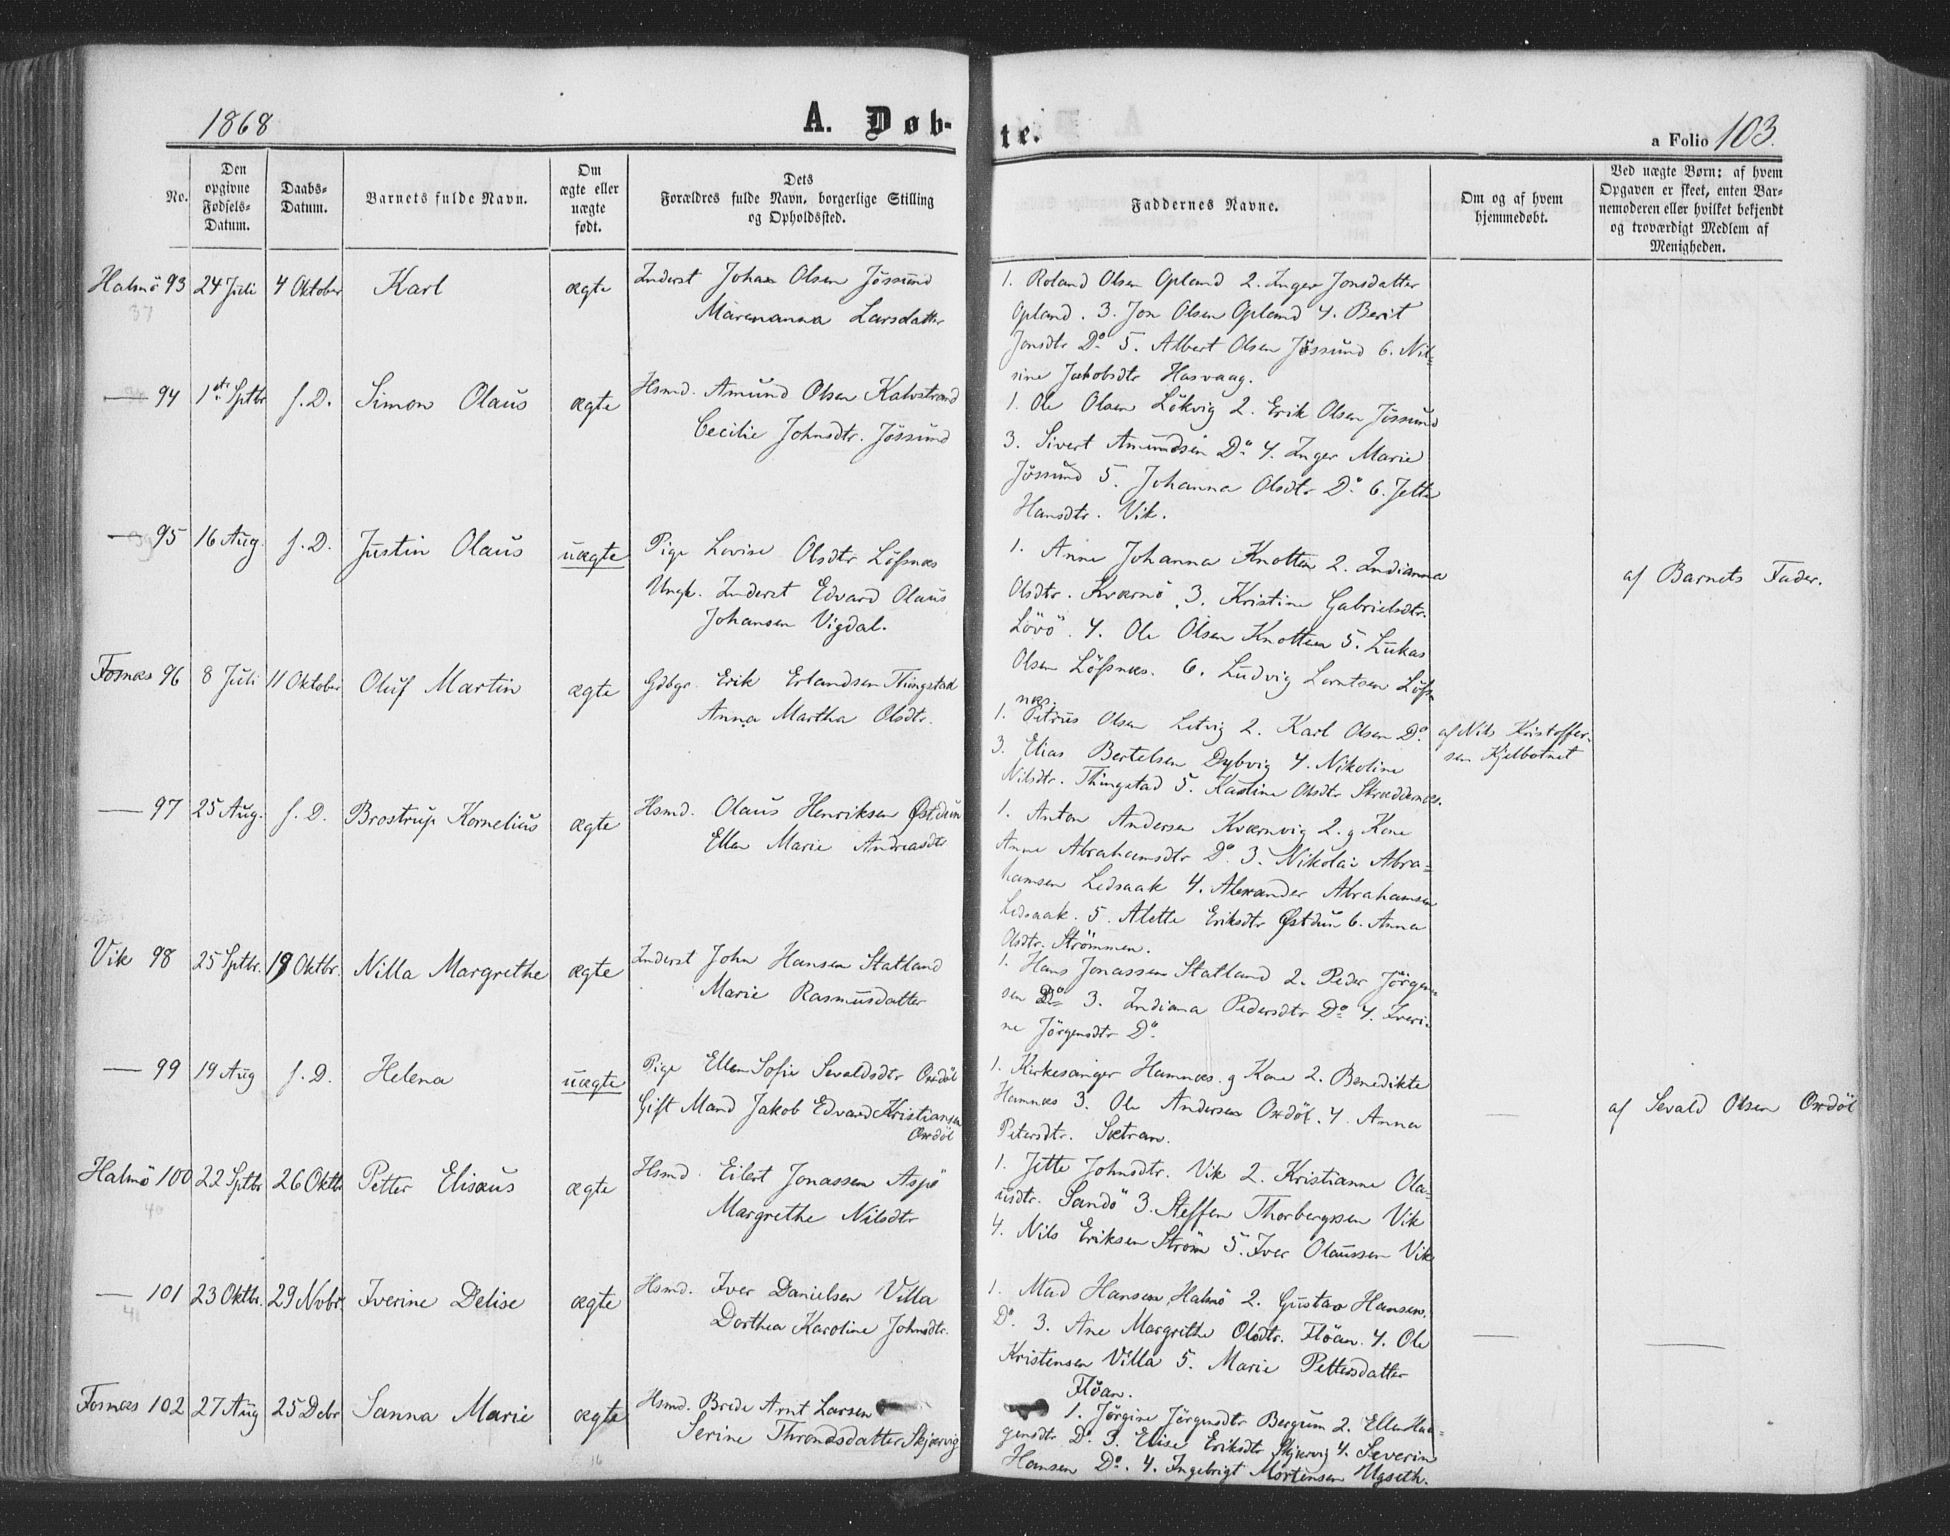 1868
A. Døb-
te.
a Folio 103.
No.
Den opgivne Fødsels-Datum.
Daabs-Datum.
Barnets fulde Navn.
Om ægte eller uægte født.
Dets Forældres fulde Navn, borgerlige Stilling og Opholdssted.
Faddernes Navne.
Om og af hvem hjemmedøbt.
Ved uægte Børn: af hvem Opgaven er skeet, enten Barnemoderen eller hvilket bekjendt og troværdigt Medlem af Menigheden.
Halmö 93 24 Juli 4 Oktober Karl ægte Inderst Johan Olsen Jössund
37 Marenanna Larsdatter
1. Roland Olsen Opland 2. Inger Jonsdatter
Opland. 3. Jon Olsen Opland 4. Berit
Jonsdtr Do. 5. Albert Olsen Jössund 6. Nil-
sine Jakobsdtr Hasvaag.
— 94 1ste Sptbr s. D. Simon Olaus ægte Hsmd. Amund Olsen Kalvstrand
Cecilie Johnsdtr. Jössund
1. Ole Olsen Lökvig 2. Erik Olsen Jössund
3. Sivert Amundsen Do. 4. Inger Marie
Jössund 5. Johanna Olsdtr Do. 6. Jette
Hansdtr. Vik.
— 95 16 Aug. s. D. Justin Olaus uægte Pige Lovise Olsdtr Löfsnæs
Ungk. Inderst Edvard Olaus
Johansen Vigdal.
1. Anne Johanna Knotten 2. Indianna
Olsdtr. Kværnö 3. Kristine Gabrielsdtr.
Lövö. 4. Ole Olsen Knotten 5. Lukas
Olsen Löfsnæs. 6. Ludvig Lorntsen Löfs-
næs.
af Barnets Fader.
Fosnæs 96 8 Juli 11 Oktober Oluf Martin ægte Gdbgr. Erik Erlandsen Thingstad
Anna Martha Olsdtr.
1. Petrus Olsen Letvig 2. Karl Olsen Do.
3. Elias Bertelsen Dybvig 4. Nikoline
Nilsdtr. Thingstad 5. Karoline Olsdtr Skræddernæs.
af Nils Kristoffer-
sen Kjelbotnet
— 97 25 Aug. s. D. Brostrup Kornelius ægte Hsmd. Olaus Henriksen Østdun
Ellen Marie Andreasdtr
1. Anton Andersen Kværnvig 2. g Kone
Anne Abrahamsdtr Do. 3. Nikolai Abra-
hamsen Ledsaak 4. Alexander Abrahamsen
Ledsaak. 5. Alette Eriksdtr Østdun 6. Anna
Olsdtr. Strömmen.
Vik 98 25 Sptbr. 19 Oktbr. Nilla Margrethe ægte Inderst John Hansen Statland
Marie Rasmusdatter
1. Hans Jonassen Statland 2. Peder Jörgen-
sen Do 3. Indiana Pedersdtr Do. 4. Iveri-
ne Jörgensdtr Do.
— 99 19 Aug s. D. Helena uægte Pige Ellen Sofie Sevaldsdtr Oxdöl
Gift Mand Jakob Edvard Kristiansen
Oxdöl
1. Kirkesanger Hamnæs. g Kone 2. Benedikte
Hamnæs 3. Ole Andersen Oxdöl. 4. Anna
Petersdtr. Sætran.
—
af Sevald Olsen Oxdöl
Halmö 100 22 Sptbr 26 Oktb Petter Elisæus ægte Hsmd. Eilert Jonassen Aspö
40 Margrethe Nilsdtr
1. Jette Johnsdtr. Vik 2. Kristianne Ola-
usdtr. Sandö 3. Steffen Thorbergsen Vik
4. Nils Eriksen Ström 5. Iver Olaussen Vik
— 101 23 Oktbr. 29 Novbr. Iverine Delise ægte Hsmd. Iver Danielsen Villa
41 Dorthea Karoline Johnsdtr.
1. Mad Hansen Halmö 2. Gustav Hansen.
Do. 3. Ane Margrethe Olsdtr. Flöan. 4. Ole
Kristensen Villa 5. Marie Pettersdatter
Flöan.
— —
Fosnæs 102 27 Aug 25 Debr Sanna Marie ægte Hsmd. Brede Arnt Larsen
Serine Throndsdatter Skjærvig
16
1. Jörgine Jörgensdtr Bergum 2. Ellen Hau-
gensdtr Do. 3. Elise Eriksdtr Skjærvig 4. Severin
Hansen Do. 4. Ingebrigt Mortensen Ugseth.